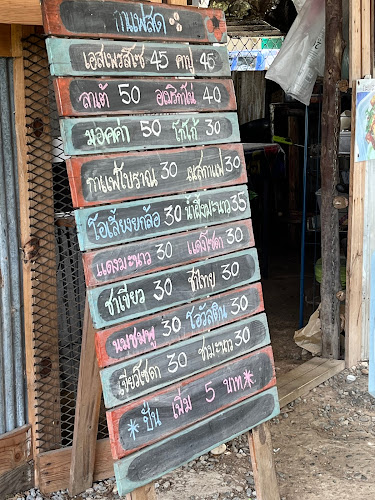 กาแฟสด
เอสเพรสโซ่ 45 คาปู 45
ลาเต้ 50 อเมริกาโน่ 40
มอคค่า 50 โกโก้ 30
กาแฟโบราณ 30 เนสกาแฟ 30
โอเลี้ยงยกล้อ 30 น้ำผึ้งมะนาว 35
แดงมะนาว 30 แดงโซดา 30
ชาเขียว 30 ชาไทย 30
นมชมพู 30 โอวัลติน 30
เขียวโซดา 30 ชามะนาว 30
*ปั่น เพิ่ม 5 บาท*